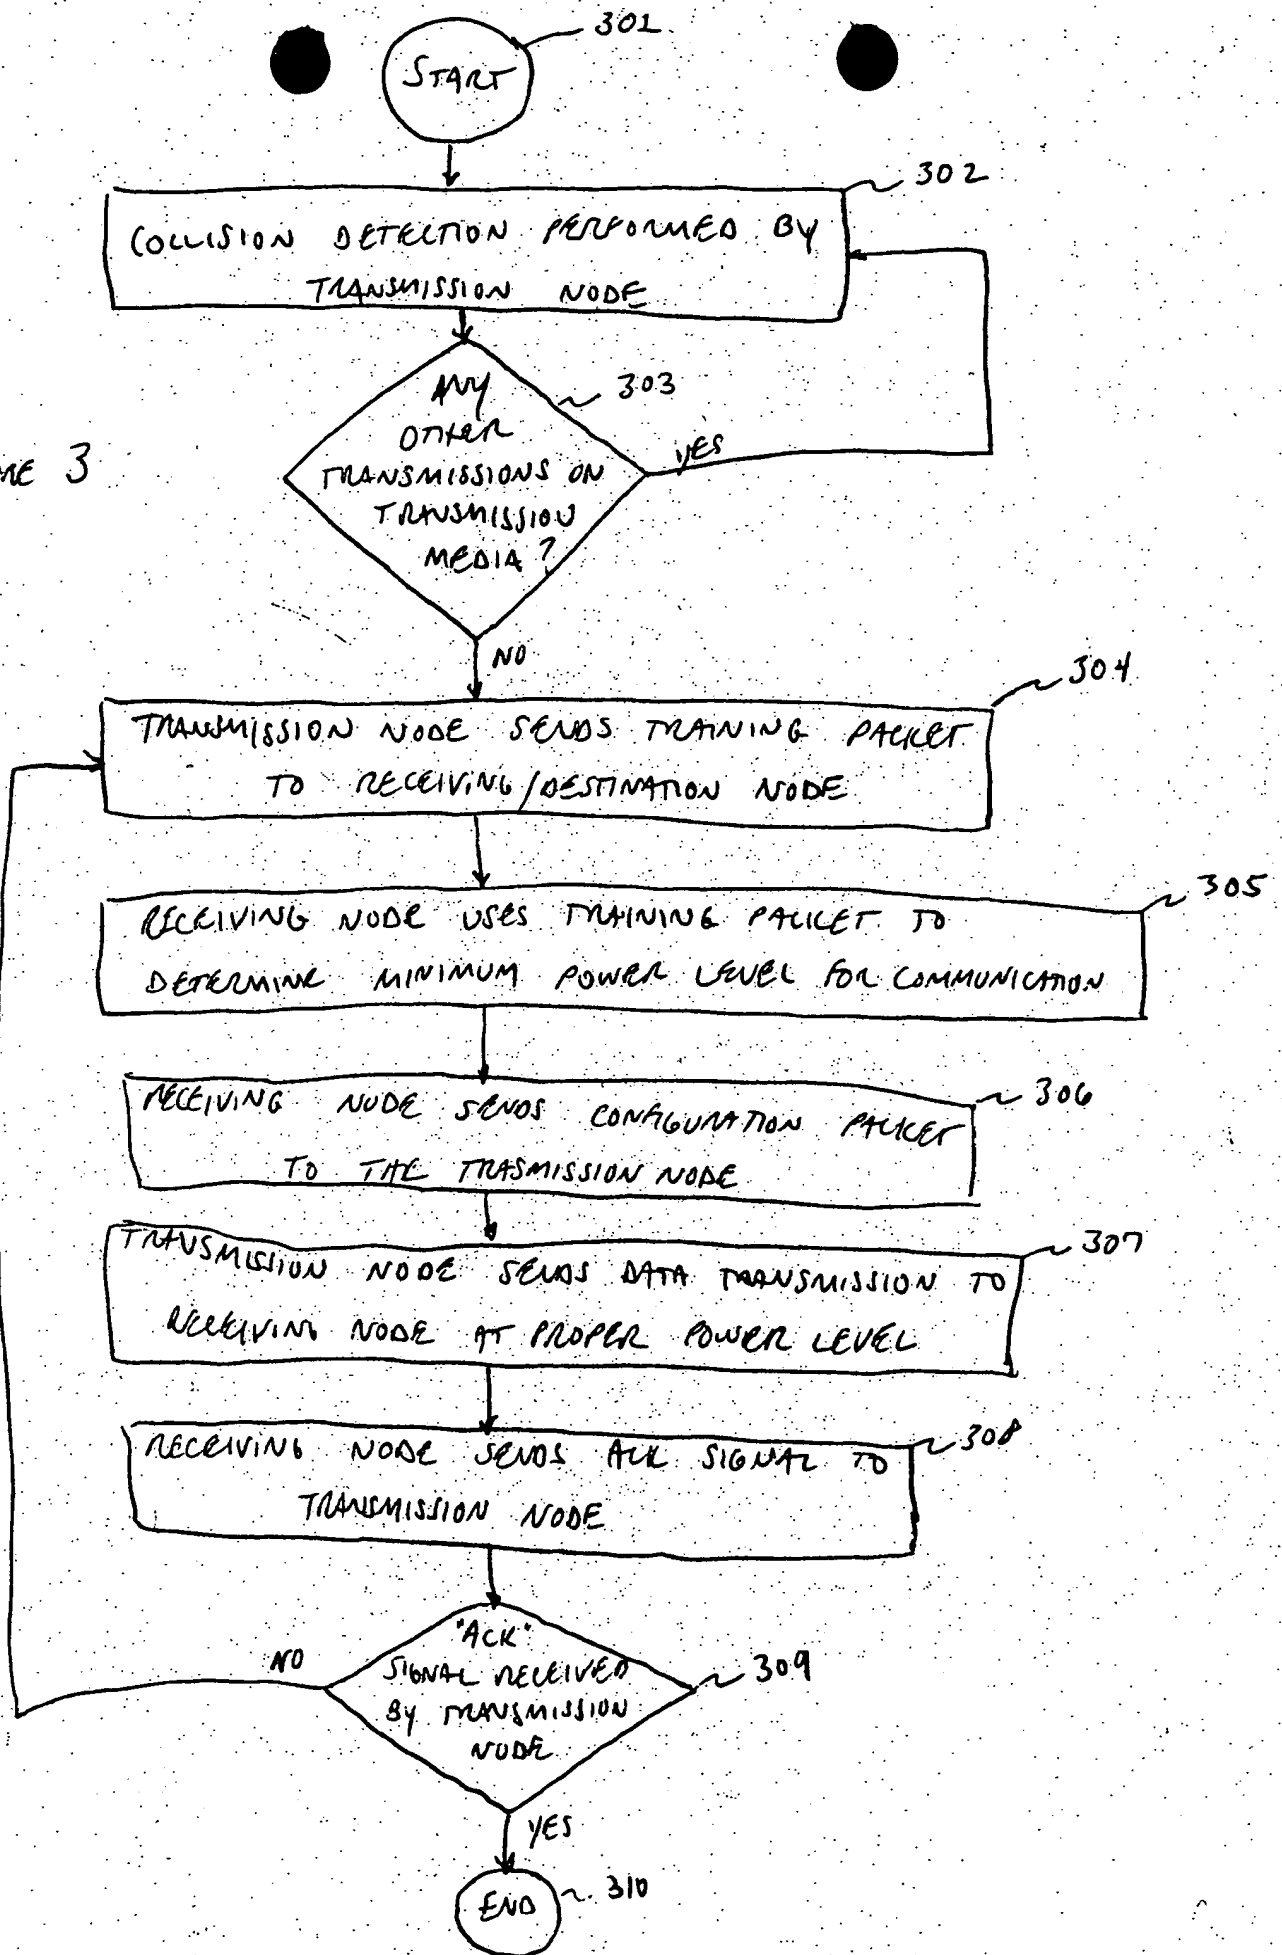 301
START
302
COLLISION DETECTION PERFORMED BY
TRANSMISSION NODE
303
ANY
OTHER
TRANSMISSIONS ON
TRANSMISSION
MEDIA?
YES
3
NO
304
TRANSMISSION NODE SENDS TRAINING PACKET
TO RECEIVING/DESTINATION NODE
305
RECEIVING NODE USES TRAINING PACKET TO
DETERMINE MINIMUM POWER LEVEL FOR COMMUNICATION
306
RECEIVING NODE SENDS CONFIGURATION PACKET
TO THE TRASMISSION NODE
307
TRANSMISSION NODE SENDS DATA TRANSMISSION TO
RECEIVING NODE AT PROPER POWER LEVEL
308
RECEIVING NODE SENDS ACK SIGNAL TO
TRANSMISSION NODE
309
"ACK"
SIGNAL RECEIVED
BY TRANSMISSION
NODE
NO
YES
END
310